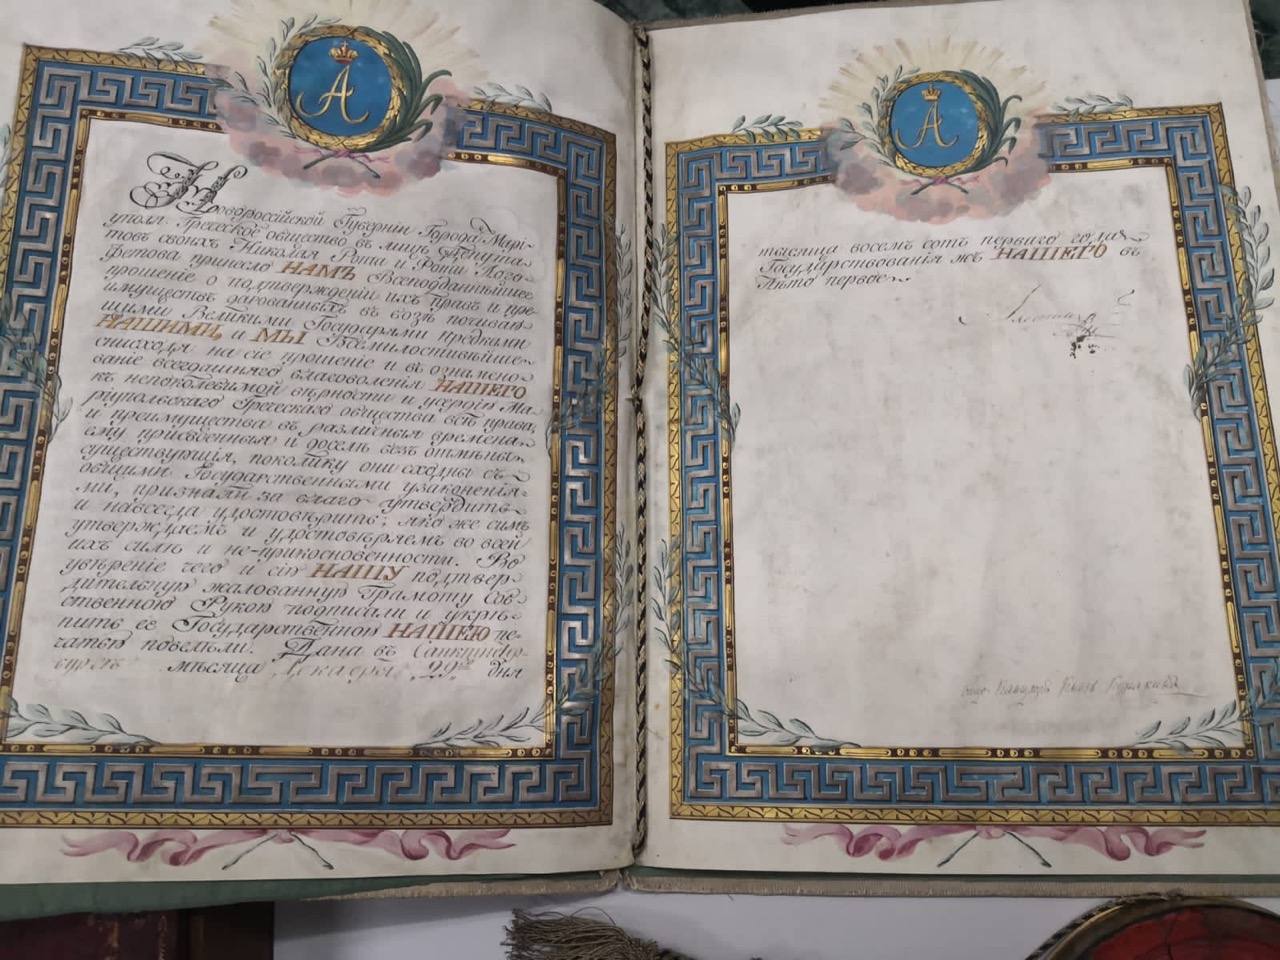 А
Новороссійской Губерніи Города Марі-
уполя Греческое общество въ лицѣ
товъ своихъ Николая Роти и
фетова принесло НАМЪ Всеподданнѣйшее
прошеніе о подтвержденіи ихъ правъ и пре-
имуществъ дарованныхъ въ бозѣ почиваю-
щими Великими Государями предками
НАШИМИ, и МЫ Всемилостивѣйше
снисходя на сіе прошеніе и въ ознамено-
ваніе всегдашняго благоволенія НАШЕГО
къ непоколебимой вѣрности и усердію Ма-
ріупольскаго Греческаго общества всѣ права
и преимущества въ различныя времена
ему присвоенныя и доселѣ безъ отмѣны
существующія, поколику они сходны съ
общими Государственными узаконенія-
ми, признали за благо утвердить
и навсегда удостовѣрить; яко же симъ
утверждаемъ и удостовѣряемъ во всей
ихъ силѣ и не-прикосновенности. Во
увѣреніе чего и сію НАШУ подтвер-
дительную жалованную Грамоту Соб-
ственною Рукою подписали и укрѣ-
пить ее Государственною НАШЕЮ пе-
чатью повелѣли. Дана въ Санктпетер-
бургѣ мѣсяца Декабря 29го дня
А
тысяща восемь сотъ перваго года
Государствованія жъ НАШЕГО въ
Лѣто первое
Александръ
Канцлеръ Князь Куракинъ